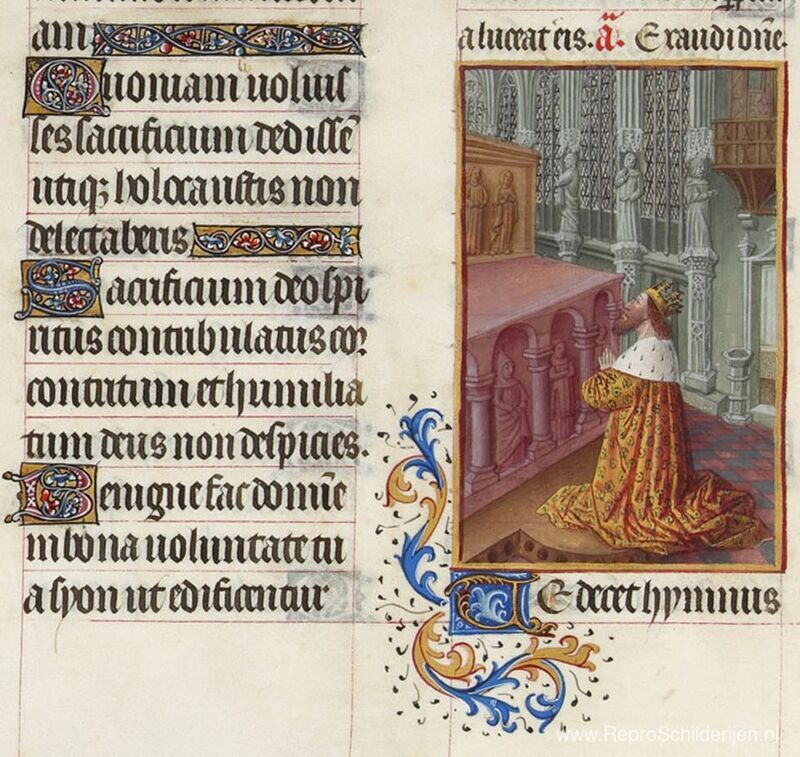 am
Quoniam voluis
ses sacrificium dedissē
utiqꝫ holocaustis non
delectaberis
Sacrificium deo spi
ritus contribulatus cor
contritum et humilia
tum deus non despicies.
Benigne fac domine
in bona voluntate tu
a syon ut edificentur
a luceat eis. a. Exaudi dn̄e.
Te decet hymnus
www.ReproSchilderijen.nl